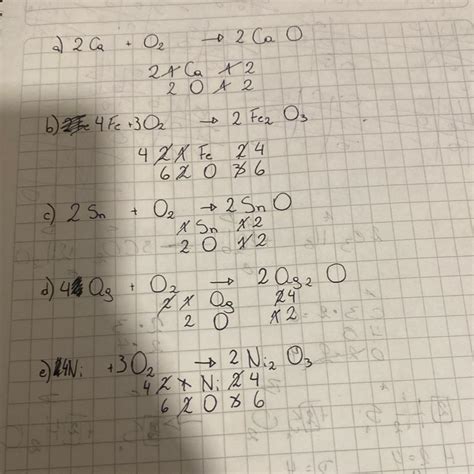 a) 2Ca + O₂ → 2CaO
2 1 Ca 1 2
2 O 1 2
b) 4Fe + 3O₂ → 2Fe₂O₃
4 2 1 Fe 2 4
6 2 O 3 6
c) 2Sn + O₂ → 2SnO
1 Sn 1 2
2 O 1 2
d) 4Ag + O₂ → 2Ag₂O
2 1 Ag 2 4
2 O 1 2
e) 4Ni + 3O₂ → 2Ni₂O₃
4 2 1 Ni 2 4
6 2 O 3 6